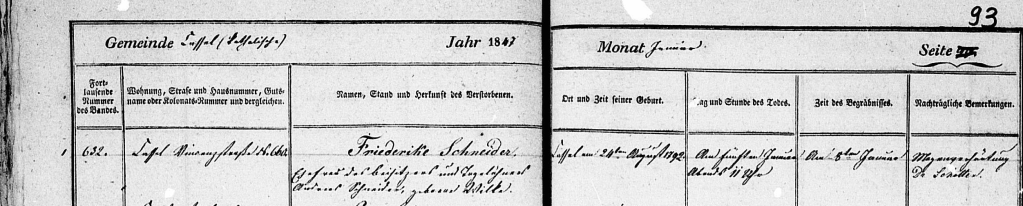 93
Gemeinde Cassel (katholische) Jahr 1847 Monat Januar. Seite
Fort-
laufende
Nummer
des Bandes.
Wohnung, Straße und Hausnummer, Guts-
name oder Kolonats-Nummer und dergleichen.
Namen, Stand und Herkunft des Verstorbenen.
Ort und Zeit seiner Geburt.
Tag und Stunde des Todes.
Zeit des Begräbnisses.
Nachträgliche Bemerkungen.
632.
Cassel № 660.
Friederike Schneider,
Ehefrau des Beisitzers und Tagelöhners
Andreas Schneider, geborne Wilke.
Cassel am 24ten August 1792.
Am fünften Januar
Abends 11 Uhr
Am 8ten Januar
Magenverhärtung
Dr